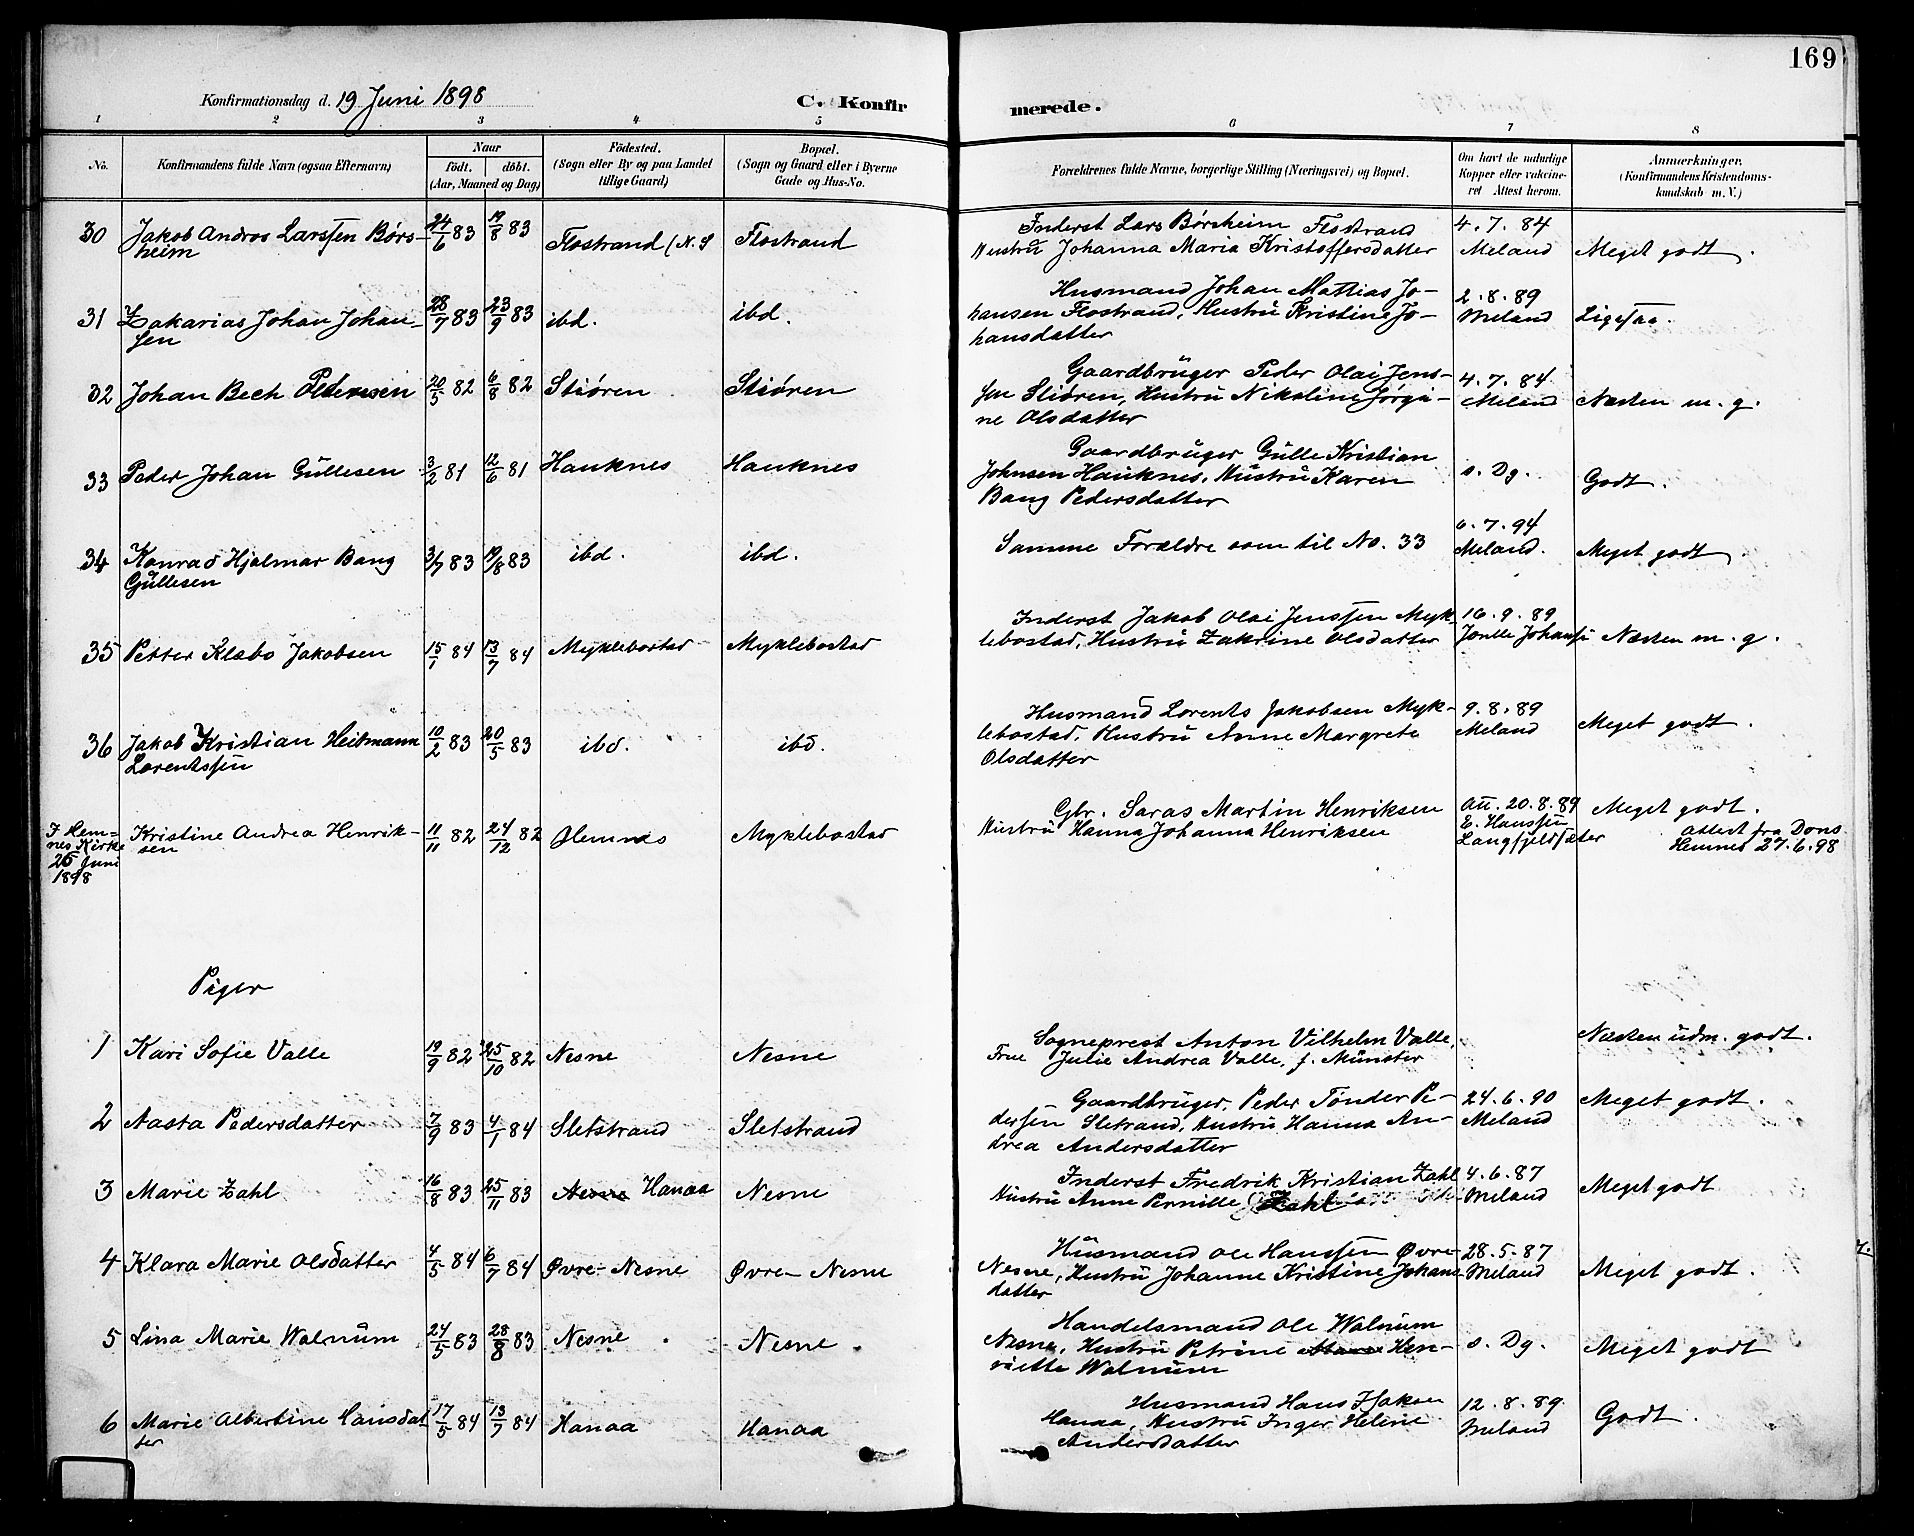 169
Konfirmationsdag d. 19 Juni 1898
C. Konfirmerede.
1 2 3 4 5 6 7 8
No. Konfirmandens fulde Navn (ogsaa Efternavn) Naar födt. döbt. (Aar, Maaned og Dag) Födested. (Sogn eller By og paa Landet tillige Gaard) Bopæl. (Sogn og Gaard eller i Byerne Gade og Hus-No. Forældrenes fulde Navne, borgerlige Stilling (Næringsvei) og Bopæl. Om havt de naturlige Kopper eller vaccineret Attest herom. Anmærkninger. (Konfirmandens Kristendomskundskab m. V.)
30 Jakob Andros Larssen Børs- 24/6 83 19/8 83 Flostrand (N. S Flostrand Inderst Lars Børsheim Flostrand 4.7.84
heim Hustrü Johanna Maria Kristoffersdatter Meland Meget godt.
31 Zakarias Johan Johan- 28/7 83 23/9 83 ibd. ibd. Husmand Johan Mattias Jo- 2.8.89
sen hansen Flostrand, Hustrü Kristine Jo- Meland Ligesaa.
hansdatter
32 Johan Bech Pedersen 20/5 82 6/8 82 Stiøren Stiøren Gaardbrüger Peder Olai Jens- 4.7.84
sen Stiøren, Hustrü Nikoline Jørgi- Meland Næsten m. g.
ne Olsdatter
33 Peder Johan Güllesen 3/2 81 12/6 81 Hauknes Hauknes Gaardbrüger Gülle Kristian
Johnsen Hauknes, Hustrü Karen s. Dg. Godt.
Bang Pedersdatter
34 Konrad Hjalmar Bang 3/7 83 19/8 83 ibd. ibd. Samme Forældre som til No. 33 6.7.94
Güllesen Meland. Meget godt
35 Petter Klæbo Jakobsen 15/1 84 13/7 84 Myklebostad Myklebostad Inderst Jakob Olai Jenssen Myk- 16.9.89
lebostad, Hustrü Zakrine Olsdatter Næsten m. g.
36 Jakob Kristian Heitmann 10/2 83 20/5 83 ibd. ibd. Husmand Lorents Jakobsen Myk- 9.8.89
Lorentssen lebostad, Hustrü Anne Margrete Meland Meget godt.
Olsdatter
I Hem- Kristine Andrea Henrik- 11/11 82 24/12 82 Hemnes Myklebostad Gbr. Saras Martin Henriksen 20.8.89 Meget godt.
nes Kirke sen Hustrü Hanna Johanna Henriksen E. Hanssen attest fra
25 Juni Langfjeldsæter Hemnes 27.6.98
1898
Piger
1 Kari Sofie Valle 19/9 82 25/10 82 Nesne Nesne Sogneprest Anton Vilhelm Valle, Næsten üdm. godt.
Frue Julie Andrea Valle, f. Münster
2 Aasta Pedersdatter 7/9 83 4/1 84 Sletstrand Sletstrand Gaardbrüger Peder Tønder Pe- 24.6.90 Meget godt.
dersen Sletrand, Hustrü Hanna An- Meland
drea Andersdatter
3 Marie Zahl 16/8 83 25/11 83 Nesne Hanaa Nesne Inderst Fredrik Kristian Zahl 4.6.87 Meget godt
Hustrü Anne Pernille Zahl Meland
4 Klara Marie Olsdatter 4/5 84 6/7 84 Øvre-Nesne Øvre-Nesne Hüsmand Ole Hanssen Øvre- 28.5.87
Nesne, Hustrü Johanne Kristine Johans- Meland Meget godt.
datter
5 Lina Marie Walnüm 24/5 83 28/8 83 Nesne Nesne. Handelsmand Ole Walnüm
Nesne, Hustrü Petrine Hen- s. Dg. Meget godt
riette Walnüm
6 Marie Albertine Hansdat- 17/5 84 13/7 84 Hanaa Hanaa Husmand Hans Isaksen 12.8.89
ter Hanaa, Hustrü Inger Heline Meland Godt.
Andersdatter